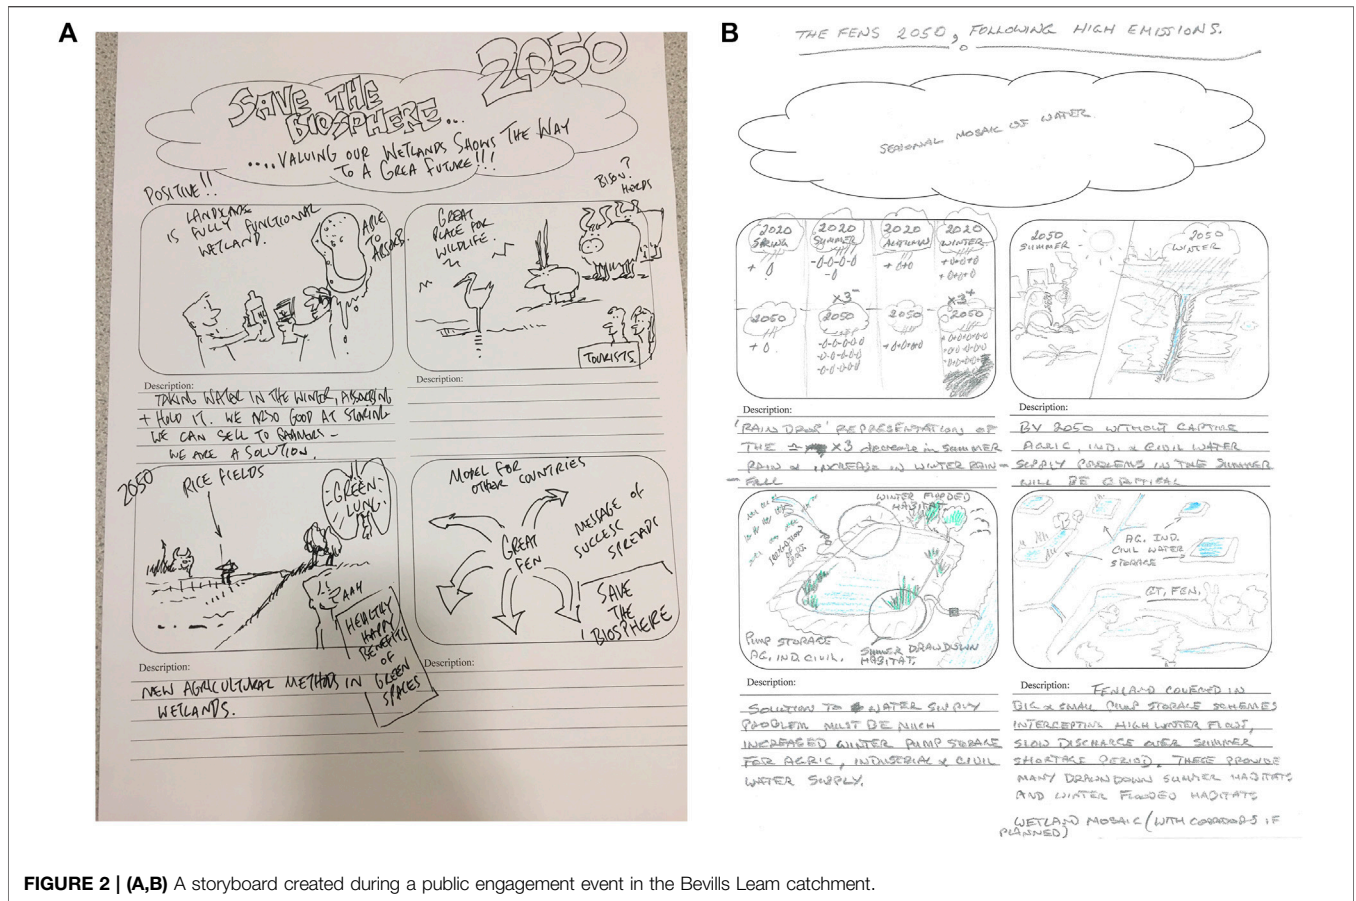 A
2050
SAVE THE
BIOSPHERE...
....VALUING OUR WETLANDS SHOWS THE WAY
TO A GREA FUTURE!!!
POSITIVE!!
LANDSCAPE
IS FULLY FUNCTIONAL
WETLAND.
ABLE
TO
ABSORB.
GREAT
PLACE FOR
WILDLIFE.
BISON?
HERDS
TOURISTS.
Description:
TAKING WATER IN THE WINTER, ABSORBING
+ HOLD IT. WE ALSO GOOD AT STORING
WE CAN SELL TO FARMERS -
WE ARE A SOLUTION.
Description:
2050
RICE FIELDS
GREEN
LUNG.
AAH
HEALTHY
HAPPY
BENEFITS
OF
GREEN
SPACES
MODEL FOR
OTHER COUNTRIES
MESSAGE OF
SUCCESS
SPREADS
GREAT
FEN
SAVE
THE
BIOSPHERE
Description:
NEW AGRICULTURAL METHODS IN
WETLANDS.
Description:
B
THE FENS 2050, FOLLOWING HIGH EMISSIONS.
SEASONAL MOSAIC OF WATER
2020
SPRING
2020
SUMMER
2020
AUTUMN
2020
WINTER
2050
x3-
2050
2050
x3+
2050
2050
SUMMER
2050
WINTER
Description:
'RAIN DROP' REPRESENTATION OF
THE x3 decrease in SUMMER
RAIN & INCREASE IN WINTER RAIN-
-FALL
Description:
BY 2050 WITHOUT CAPTURE
AGRIC, IND. & CIVIL WATER
SUPPLY PROBLEMS IN THE SUMMER
WILL BE CRITICAL
WINTER FLOODED
HABITAT.
IRRIGATION
OF
CROPS
PUMP STORAGE
AG. IND. CIVIL.
SUMMER DRAWDOWN
HABITAT.
AG. IND.
CIVIL WATER
STORAGE
GT. FEN.
Description:
SOLUTION TO WATER SUPPLY
PROBLEM MUST BE MUCH
INCREASED WINTER PUMP STORAGE
FOR AGRIC, INDUSTRIAL & CIVIL
WATER SUPPLY.
Description: FENLAND COVERED IN
BIG & SMALL PUMP STORAGE SCHEMES
INTERCEPTING HIGH WINTER FLOWS,
SLOW DISCHARGE OVER SUMMER
SHORTAGE PERIOD. THESE PROVIDE
MANY DRAWNDOWN SUMMER HABITATS
AND WINTER FLOODED HABITATS
WETLAND MOSAIC (WITH CORRIDORS IF
PLANNED)
FIGURE 2 | (A,B) A storyboard created during a public engagement event in the Bevills Leam catchment.